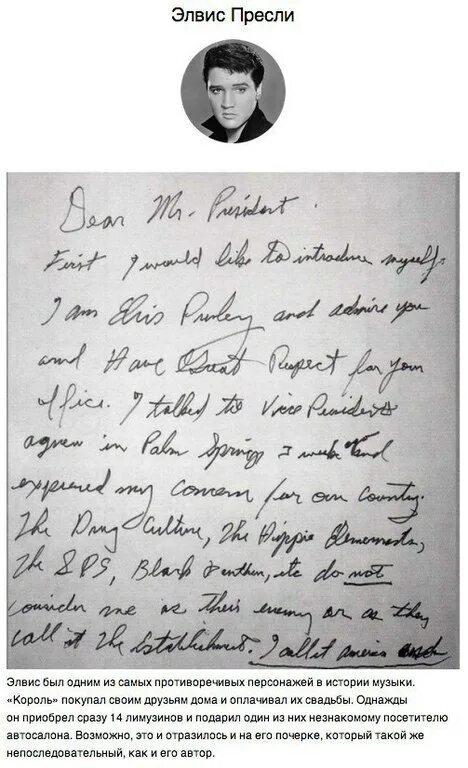 Элвис Пресли
Dear Mr. President.
First I would like to introduce myself.
I am Elvis Presley and admire you
and Have Great Respect for your
office. I talked to Vice President
agnew in Palm Springs 3 weeks and
expressed my concern for our country.
The Drug Culture, The Hippie Elements,
The SDS, Black Panthers, etc do not
consider me as their enemy or as they
call it The Establishment. I call it america and
Элвис был одним из самых противоречивых персонажей в истории музыки.
«Король» покупал своим друзьям дома и оплачивал их свадьбы. Однажды
он приобрел сразу 14 лимузинов и подарил один из них незнакомому посетителю
автосалона. Возможно, это и отразилось и на его почерке, который такой же
непоследовательный, как и его автор.